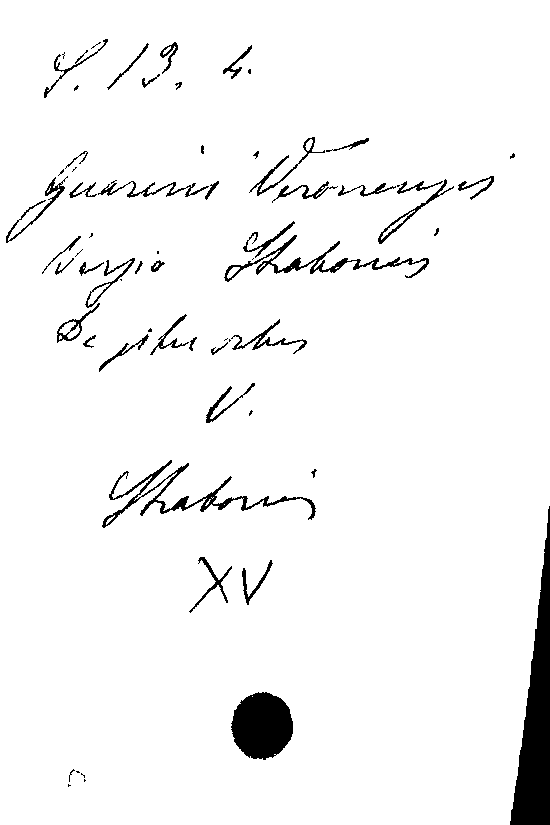 S. 13. 4.
Guarini Veronensis
Versio Strabonis
De situ orbis
V.
Strabonis
XV